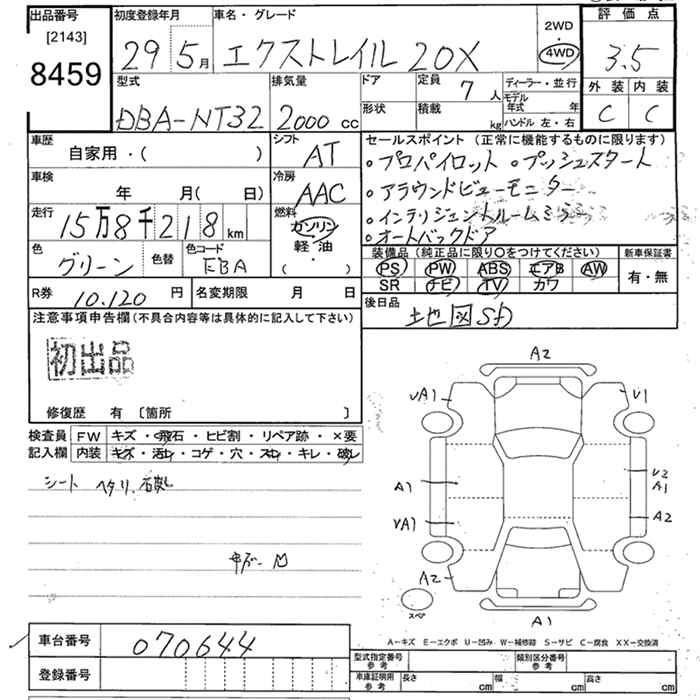 出品番号
[2143]
8459
初度登録年月
29 5月
車名・グレード
エクストレイル 20X
2WD
4WD
評価点
3.5
外装 内装
C C
型式
DBA-NT32
排気量
2000 cc
ドア
形状
定員
7人
積載
kg
ディーラー・並行
モデル年式 年
ハンドル 左・右
車歴
自家用・( )
シフト
AT
車検
年 月(日)
冷房
AAC
走行
15万8千218km
燃料
ガソリン
軽・油
( ・ )
色
グリーン
色替
色コード
EBA
R券
10.120円
名変期限 月 日
セールスポイント(正常に機能するものに限ります)
・プロパイロット ・プッシュスタート
・アラウンドビューモニター
・インテリジェントルームミラー
・オートバックドア
装備品(純正品に限り○をつけてください)
PS PW ABS エアB AW
SR ナビ TV カワ
新車保証書
有・無
後日品
地図SD
注意事項申告欄(不具合内容等は具体的に記入して下さい)
初出品
修復歴 有〔箇所 〕
検査員記入欄
FW キズ・飛石・ヒビ割・リペア跡・×要
内装 キズ・汚れ・コゲ・穴・スレ・キレ・破レ
シート ヘタリ.
A2
UA1
U1
A1
U2
A1
UA1
A2
A2
スペア
A1
A-キズ E-エクボ U-凹み W-補修跡 S-サビ C-腐食 XX-交換済
車台番号
070644
登録番号
型式指定番号
参考
類別区分番号
参考
車庫証明用
参考
長さ cm
幅 cm
高さ cm